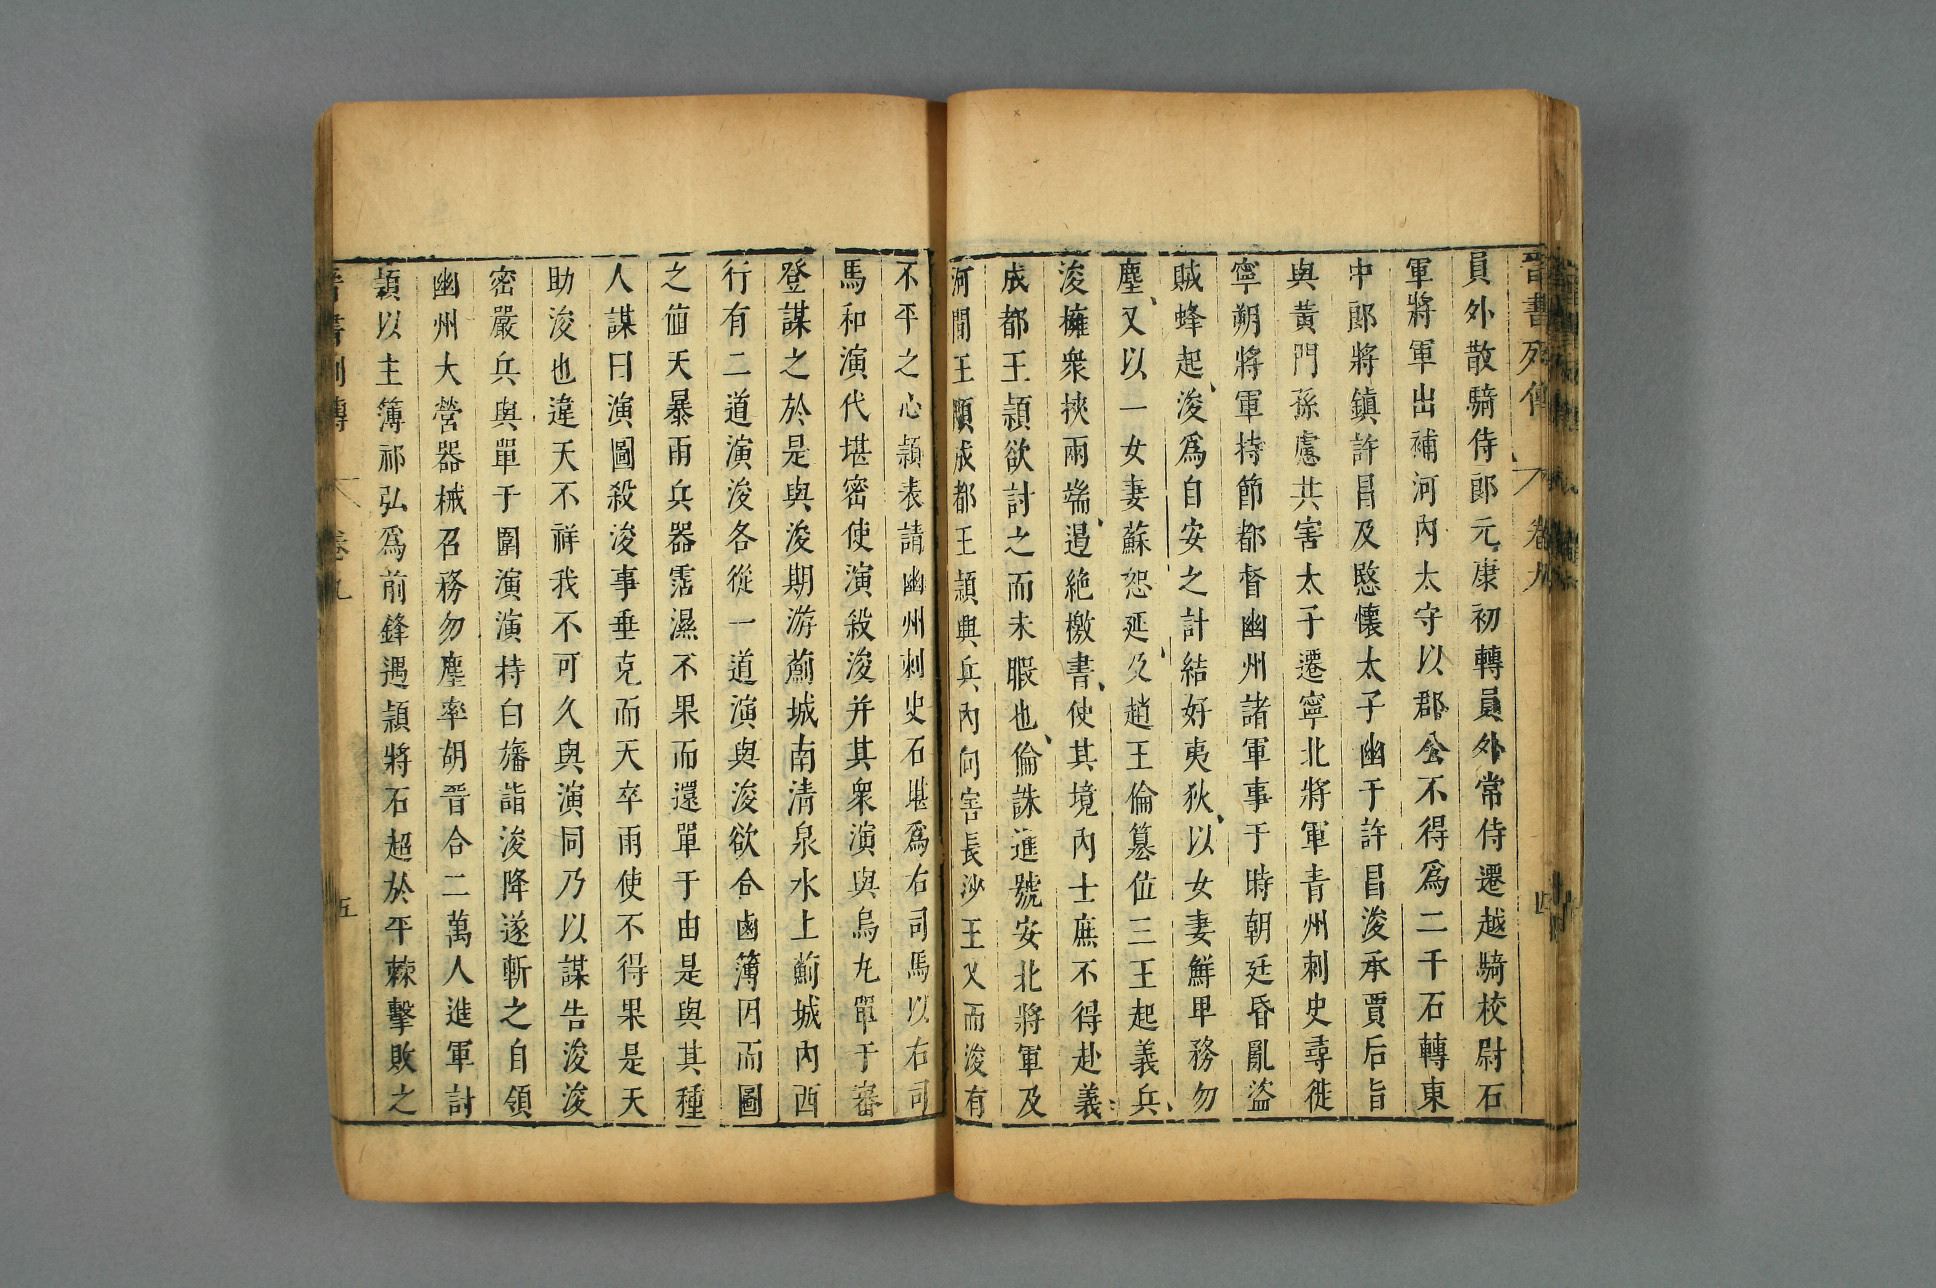 晉書列傳 卷九 四
員外散騎侍郎元康初轉員外常侍遷越騎校尉石
軍將軍出補河內太守以郡公不得爲二千石轉東
中郎將鎮許昌及愍懷太子幽于許昌浚承賈后旨
與黃門孫慮共害太子遷寧北將軍青州刺史尋徙
寧朔將軍持節都督幽州諸軍事于時朝廷昏亂盜
賊蜂起浚爲自安之計結好夷狄以女妻鮮卑務勿
塵又以一女妻蘇恕延及趙王倫篡位三王起義兵
浚擁衆挾兩端遏絶檄書使其境內士庶不得赴義
成都王穎欲討之而未暇也倫誅進號安北將軍及
河間王顒成都王穎興兵內向害長沙王乂而浚有
不平之心穎表請幽州刺史石堪爲右司馬以右司
馬和演代堪密使演殺浚并其衆演與烏丸單于審
登謀之於是與浚期游薊城南清泉水上薊城內西
行有二道演浚各從一道演與浚欲合鹵簿因而圖
之値天暴雨兵器霑濕不果而還單于由是與其種
人謀曰演圖殺浚事垂克而天卒雨使不得果是天
助浚也違天不祥我不可久與演同乃以謀告浚浚
密嚴兵與單于圍演演持白旛詣浚降遂斬之自領
幽州大營器械召務勿塵率胡晉合二萬人進軍討
穎以主簿祁弘爲前鋒遇穎將石超於平棘擊敗之
晉書列傳 卷九 五